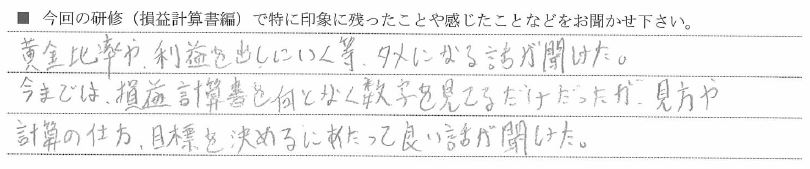 ■ 今回の研修（損益計算書編）で特に印象に残ったことや感じたことなどをお聞かせ下さい。
黄金比率や、利益を出しにいく等、タメになる話が聞けた。
今までは、損益計算書を何となく数字を見てるだけだったが、見方や
計算の仕方、目標を決めるにあたって良い話が聞けた。